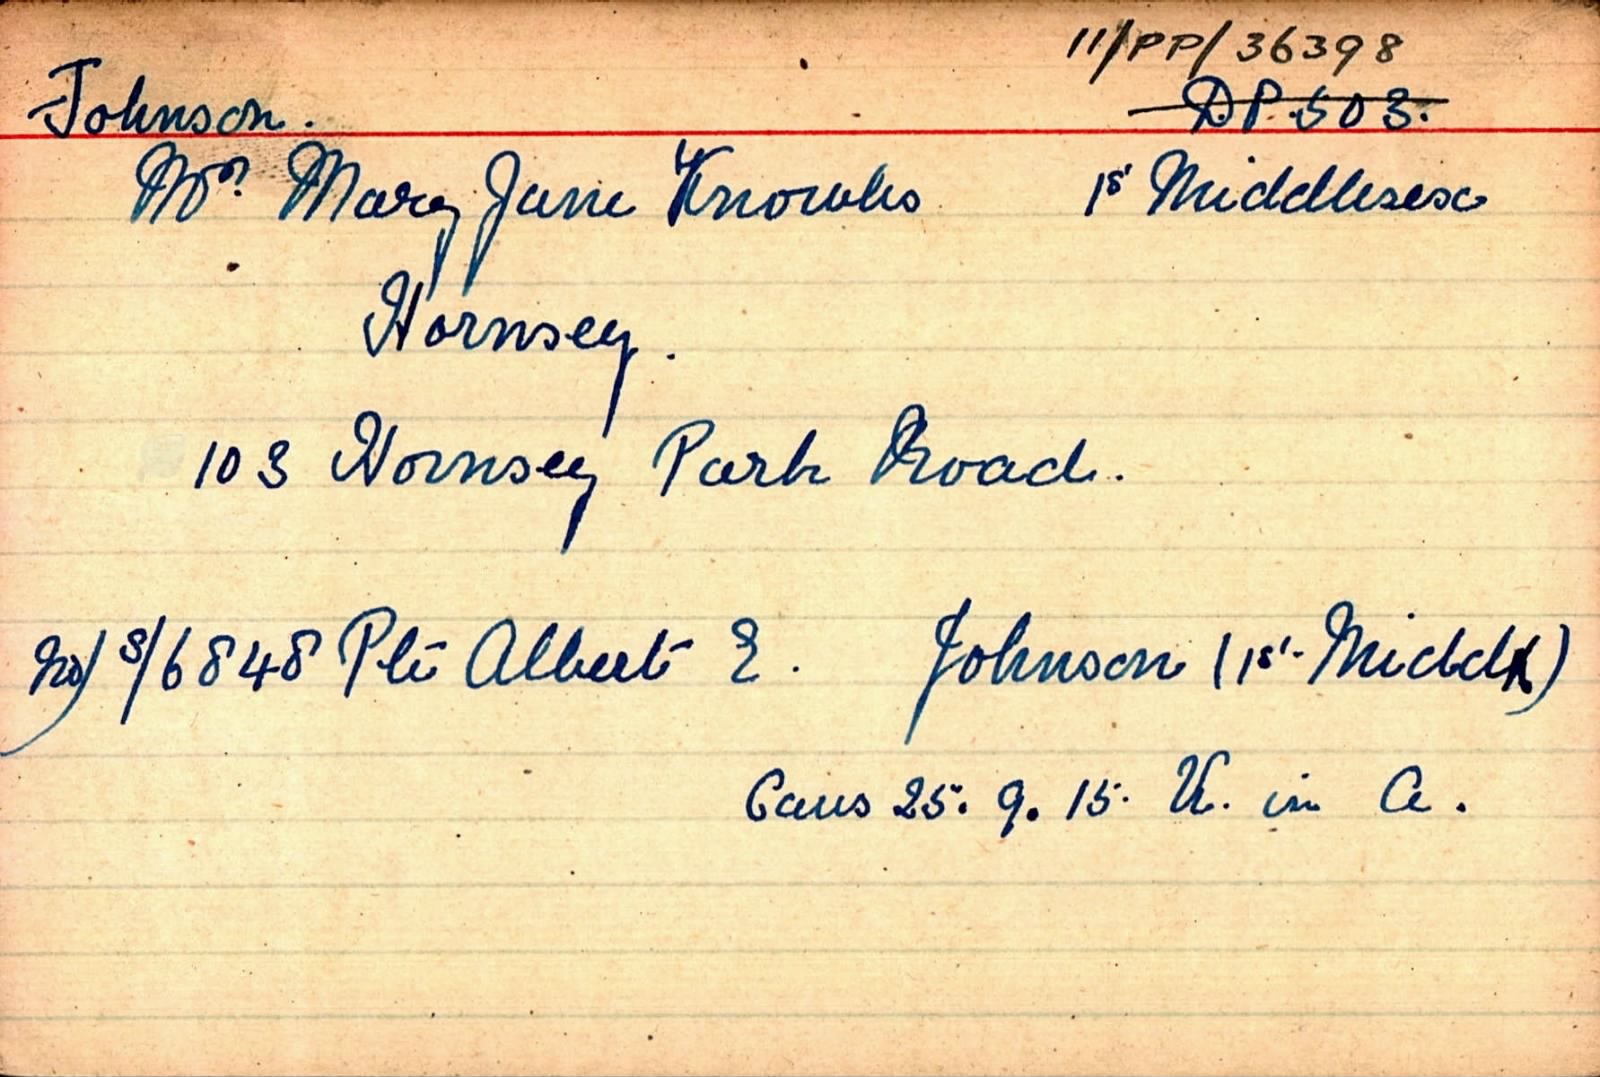 11/PP/36398
Johnson. D.P. 503.
Mrs Mary Jane Knowles 1st Middlesex
Hornsey.
103 Hornsey Park Road.
No) S/6848 Pte Albert E. Johnson (1st Middx)
Caus 25. 9. 15. K. in A.